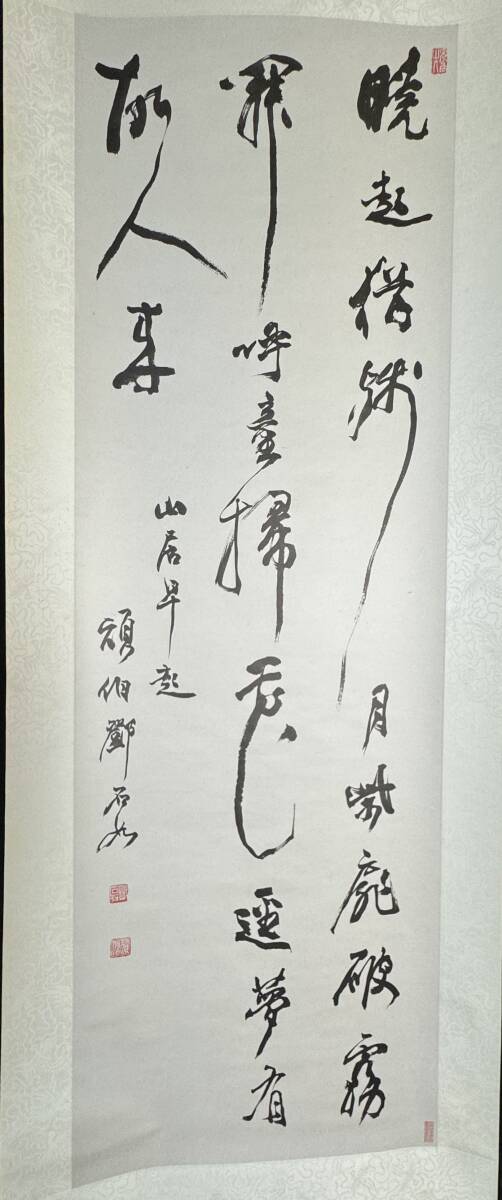 曉起猶殘月柴扉破霧
開呼童掃花逕夢有
故人來
山居早起
頑伯鄧石如